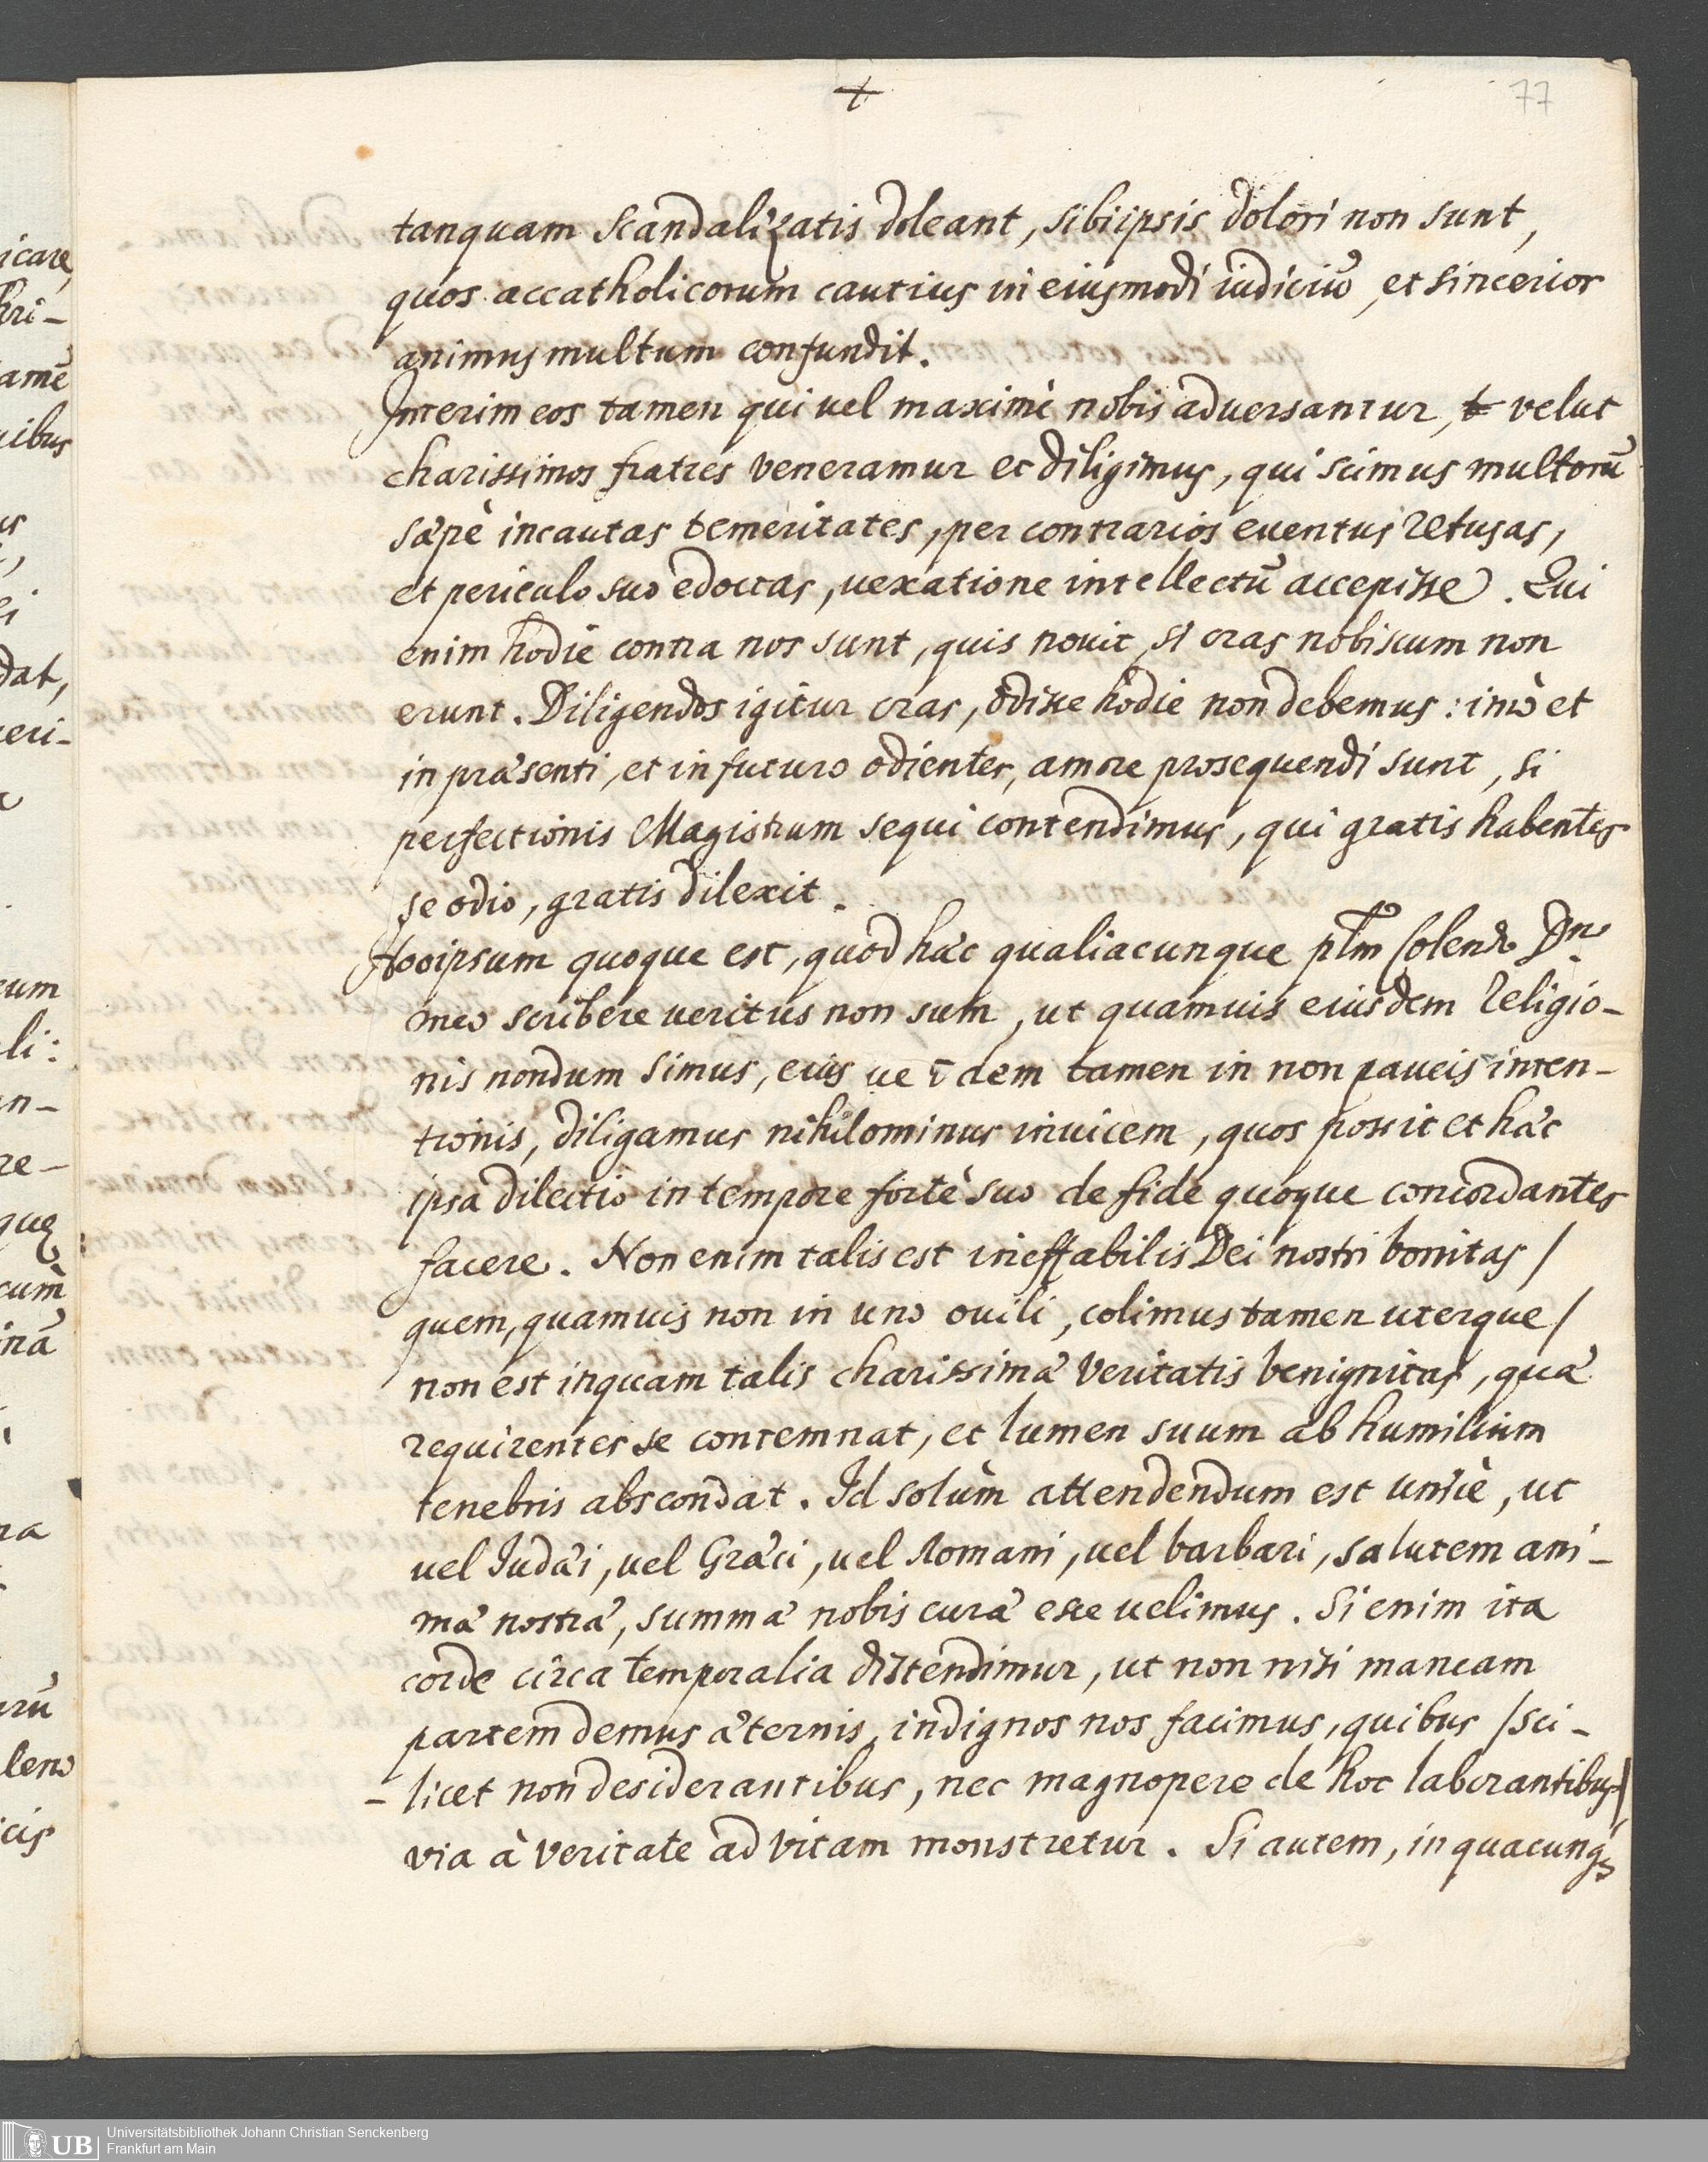 +
77
tanquam scandalizatis doleant, sibiipsis dolori non sunt,
quos accatholicorum cautius in eiusmodi iudiciũ, et sincerior
animus multum confundit.
Interim eos tamen qui uel maximè nobis aduersantur, velut
charissimos fratres veneramur et diligimus, qui scimus multorũ
sæpè incautas temeritates, per contrarios euentus retusas,
et periculo suo edoctas, uexatione intellectũ accepisse. Qui
enim hodie contra nos sunt, quis nouit si cras nobiscum non
erunt. Diligendos igitur cras, odisse hodie non debemus: imò et
in præsenti, et in futuro odientes, amore prosequendi sunt, si
perfectionis Magistrum sequi contendimus, qui gratis habentes
se odio, gratis dilexit.
Hocipsum quoque est, quod hæc qualiacunque plm Colend Dno
meo scribere ueritus non sum, ut quamuis eiusdem religio-
nis nondum simus, eius ue ĩdem tamen in non paucis inten-
tionis, diligamus nihilominus inuicem, quos possit et hæc
ipsa dilectio in tempore fortè suo de fide quoque concordantes
facere. Non enim talis est ineffabilis Dei nostri bonitas /
quem, quamuis non in uno ouili, colimus tamen uterque /
non est inquam talis charissimæ veritatis benignitas, quæ
requirentes se contemnat, et lumen suum ab humilium
tenebris abscondat. Id solùm attendendum est unicè, ut
uel Iudæi, uel Græci, uel Romani, uel barbari, salutem ani-
mæ nostræ, summæ nobis curæ esse uelimus. Si enim ita
corde circa temporalia distendimur, ut non nisi mancam
partem demus æternis, indignos nos facimus, quibus /sci-
-licet non desiderantibus, nec magnopere de hoc laborantibus/
via à veritate ad vitam monstretur. Si autem, in quacunqȝ
icare,
hri-
amẽ
uibus
dat,
ueri-
cum
li:
in-
re-
que
cum
inã
na
orũ
leno
icis
UB
Universitätsbibliothek Johann Christian Senckenberg
Frankfurt am Main